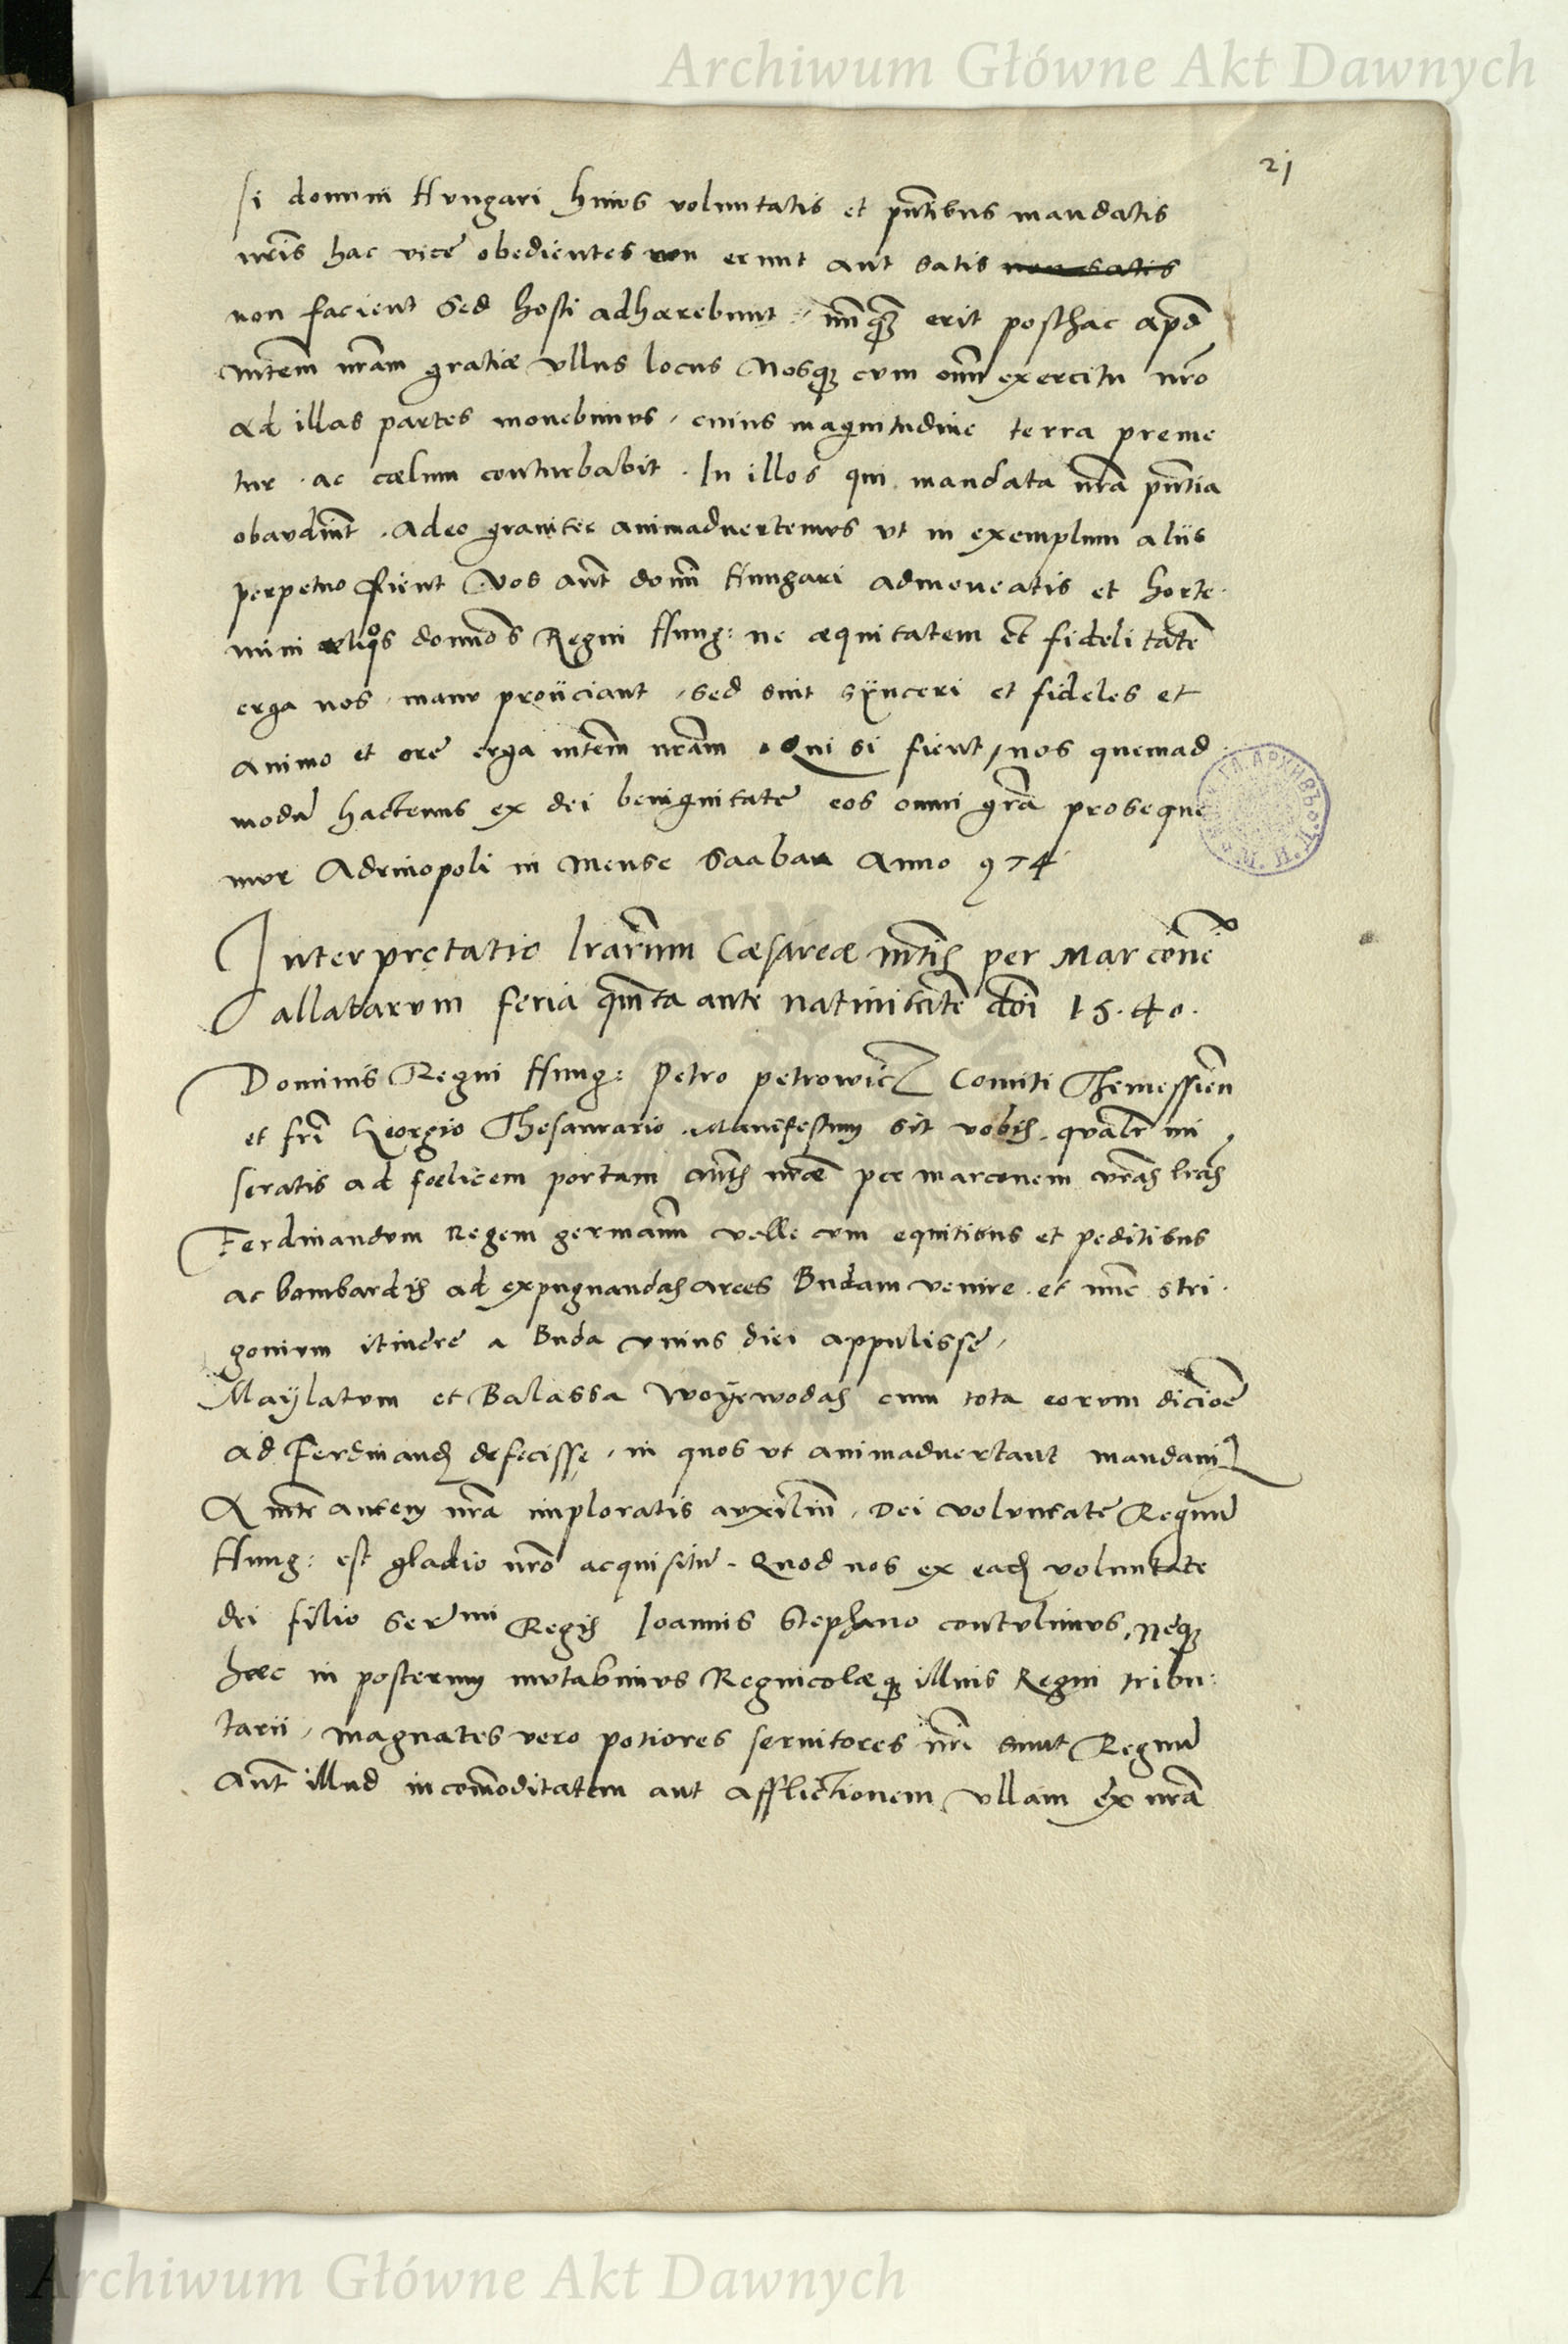 Archiwum Główne Akt Dawnych
21
si domini Hungari huius voluntatis et pñtibus mandatis
nr̃is hac vice obedientes non erunt aut satis non satis
non facient sed hosti adhærebunt, nunq̃ erit posthac apud
mtem nr̃am gratiæ vllus locus Nosq̃ cum omni exercitu nr̃o
ad illas partes mouebimus, cuius magnitudine terra preme
tur . ac cælum conturbabit . In illos qui mandata nr̃a pñtia
obaudiunt . adeo grauiter animaduertemus vt in exemplum aliis
perpetuo fient Vos aut̃ domi Hungari admoueatis et horte
mini reliqos domĩos Regni Hung: ne æquitatem et fidelitatẽ
erga nos, manu proiiciant, sed sint synceri et fideles et
animo et ore erga mtem nr̃am . Qui si fient, nos quemad
modũ hactenus ex dei benignitate eos omni grã proseque
mur Adrinopoli in Mense Saaban Anno 974
Interpretatio lrarum Cæsareæ mtis per Marconẽ
allatarum feria quinta ante natiuitatẽ dñi 15.40.
Dominis Regni Hung: Petro petrowicz Comiti Themessieñ
et frĩ Georgio Thesaurario . Manifestum sit vobis . qualr̃ mi
seratis ad fœlicem portam mtis nr̃æ per marconem vr̃as lrãs
Ferdinandum Regem germanũ velle cum equitibus et peditibus
ac bombardis ad expugnandas arces Budam venire . et nunc stri
gonium itinere a Buda vnius diei appulisse,
Maylatum et Balassa woyewodas cum tota eorum dicioẽ
ad Ferdinandũ defecisse, in quos vt animaduertant mandaui
A mte autem nr̃a imploratis auxiliũ, Dei voluntate Regnũ
Hung: est gladio nr̃o acquisitũ . Quod nos ex eadẽ voluntate
dei filio Sermi Regis Ioannis Stephano contulimus, neq̃
hæc in posterum mutabimus Regnicolæq̃ illius Regni tribu:
tarii, magnates vero potiores seruitores nr̃i sunt Regnũ
aut̃ illud incom̃oditatem aut afflictionem vllam ex nr̃a
Archiwum Główne Akt Dawnych